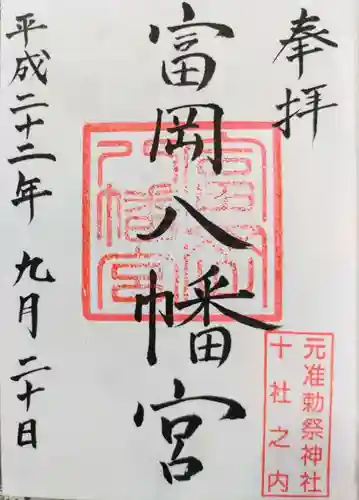 奉拝
富岡八幡宮
平成二十二年 九月 二十日
富岡八幡宮
元准勅祭神社
十社之内